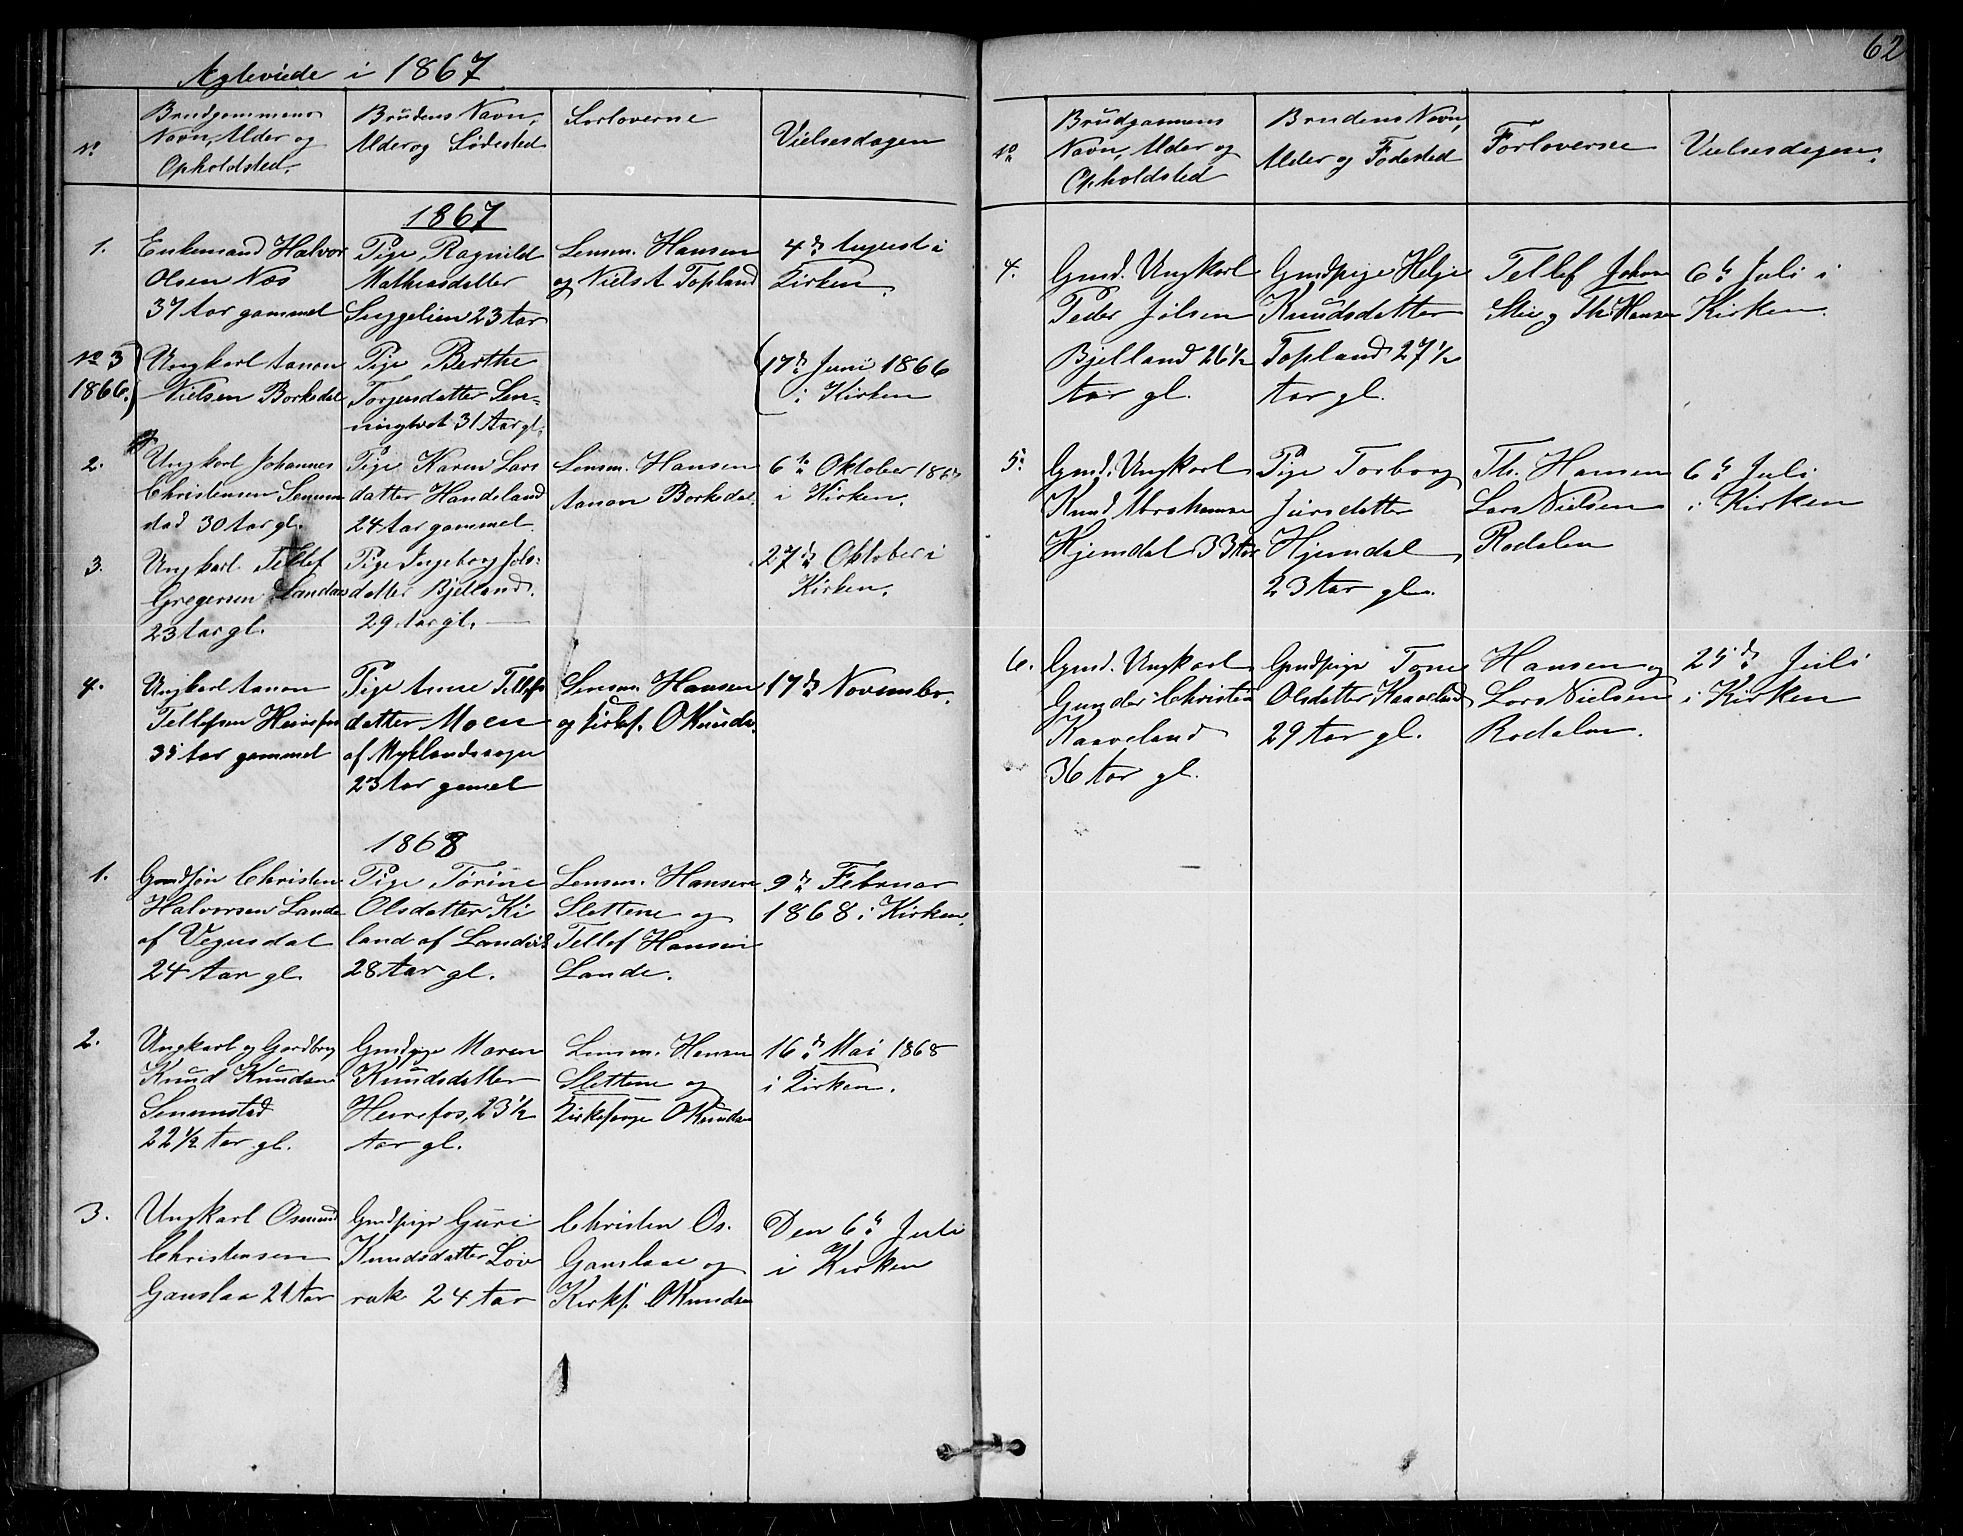 Ægteviede i 1867
No
Brudgommens
Navn, Alder og
Opholdsted.
Brudens Navn,
Alder og Födested
Forloverne
Vielsesdagen
1867
1.
Enkemand Halvor
Olsen Næs
37 Aar gammel
Pige Ragnild
Mathiasdatter
23 Aar
Lensm. Hansen
og Niels A Topland
4de August i
Kirken.
No 3
1866.
Ungkarl Aanon
Nielsen Borksdal
Pige Berthe
Torjusdatter
31 Aar gl.
(17de Juni 1866
i Kirken
2.
Ungkarl Johannes
Christensen Senum
stad 30 Aar gl.
Pige Karen Lars
datter Handeland
24 Aar gammel
Lensm. Hansen
Aanon Borksdal.
6te Oktober 1867
i Kirken.
3.
Ungkarl Tellef
Gregersen Landaas
23 Aar gl.
Pige Ingeborg Jols-
datter Bjelland.
29 Aar gl.
27de Oktober i
Kirken.
4.
Ungkarl Aanon
Tellefsen Heirefos
35 Aar gammel
Pige Anne Tellefs
datter Moen
af Myklandssogn
23 Aar gamel
Lensm. Hansen
og Kirkef. O Knuds.
17de November.
1868
1.
Gmdsön Christen
Halvorsen Lande
af Vegusdal
24 Aar gl
Pige Törine
Olsdatter Ki
land af Landvik
28 Aar gl.
Lensm. Hansen
Slettene og
Tellef Hansen
Lande.
9de Februar
1868 i Kirken.
2.
Ungkarl og Gardbrg
Knud Knudsen
Senumstad
22 1/2 Aar gl.
Gmdpige Maren
Knudsdatter
Heirefos, 23 1/2
Aar gl.
Lensm. Hansen
Slettene og
Kirkesanger O Knudsen
16de Mai 1868
i Kirken.
3.
Ungkarl Osmund
Christensen
Gauslaa 21 Aar
Gmdpige Guri
Knudsdatter Löv
rak 24 Aar
Christen Os.
Gauslaae og
Kirkf. O Knudsen
Den 6te Juli
i Kirken
62
No
Brudgommens
Navn, Alder og
Opholdsted
Brudens Navn,
Alder og Födested
Forloverne
Vielsesdagen.
4.
Gmd. Ungkarl
Peder Jolsen
Bjelland 26 1/2
Aar gl.
Gmdpige Helje
Knudsdatter
Topland 27 1/2
Aar gl.
Tellef Johan
Th. Hansen
6te Juli i
Kirken.
5.
Gmd. Ungkarl
Knud Abrahamsen
Hjemdal 33 Aar
Pige Torborg
Jursdatter
Hjemdal
23 Aar gl.
Th. Hansen
Lars Nielsen
Rodalen
6te Juli
i Kirken
6.
Gmd. Ungkarl
Gunder Christia
Kaaveland
36 Aar gl.
Gmdpige Tone
Olsdatter Kaaveland
29 Aar gl.
Hansen og
Lars Nielsen
Rodalen.
25de Juli
i Kirken